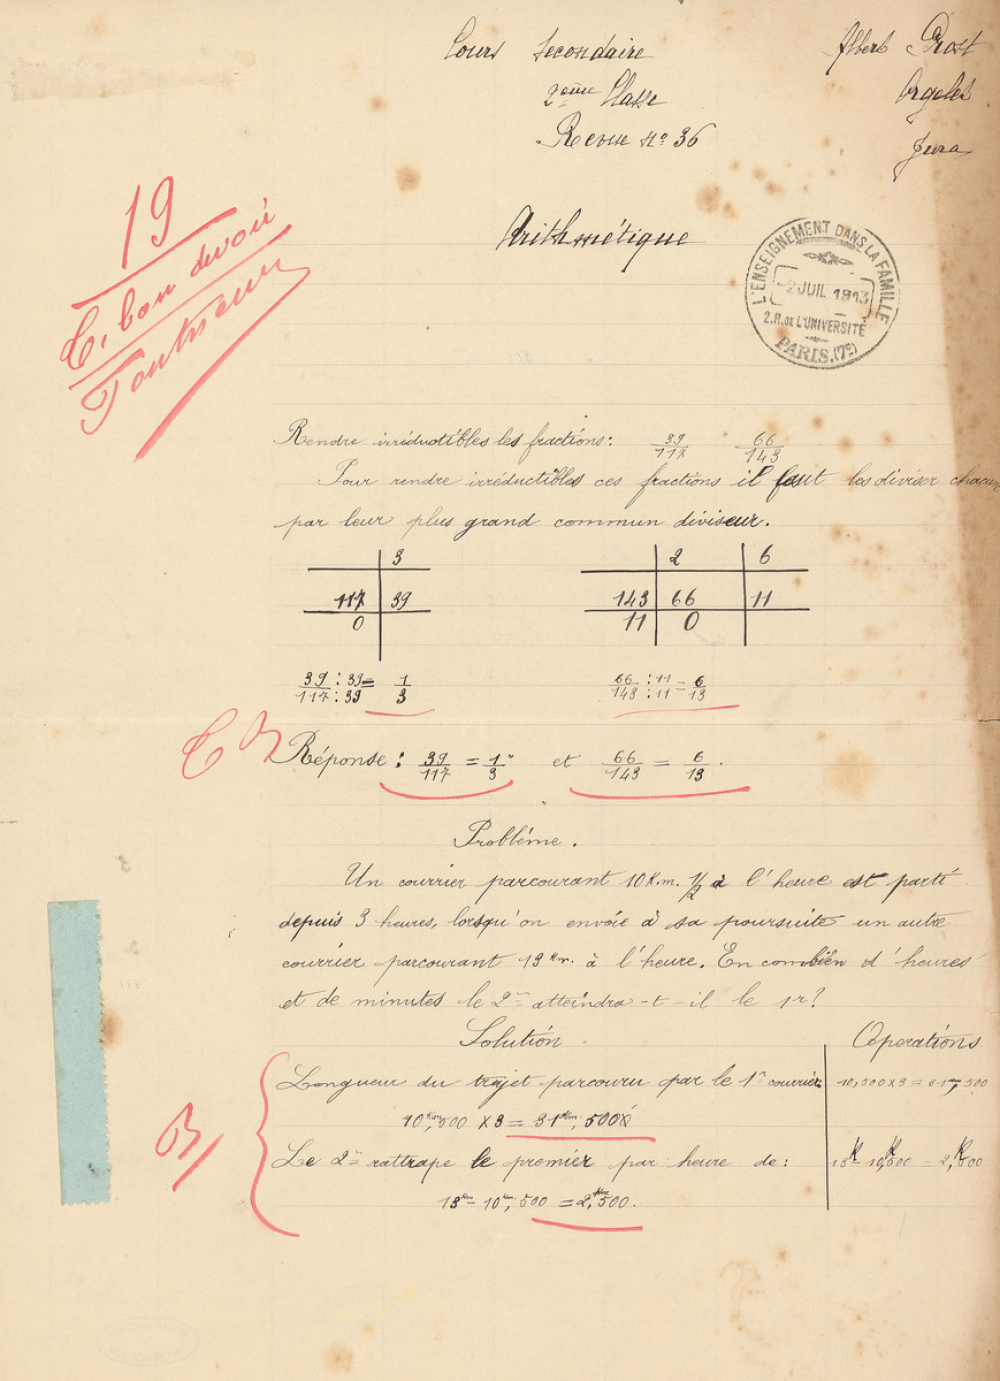 Cours Secondaire
2ème Classe
Revue nº 36
Albert Prost
Orgelet
Jura
19
T. bon devoir
Arithmétique
L'ENSEIGNEMENT DANS LA FAMILLE
2 JUIL 1913
2.R.DE L'UNIVERSITÉ
PARIS.(7e)
Rendre irréductibles les fractions: 39/117 66/143
Pour rendre irréductibles ces fractions il faut les diviser chacune
par leur plus grand commun diviseur.
3
117 39
0
2 6
143 66 11
11 0
39 : 39 / 117 : 39 = 1/3
66 : 11 / 143 : 11 = 6/13
T B
Réponse : 39/117 = 1/3 et 66/143 = 6/13.
Problème.
Un courrier parcourant 10 Km. 1/2 à l'heure est parti
depuis 3 heures, lorsqu'on envoie à sa poursuite un autre
courrier parcourant 13 Km. à l'heure. En combien d'heures
et de minutes le 2me atteindra-t-il le 1r?
Solution.
Opérations
Longueur du trajet parcouru par le 1r courrier:
10,500 x 3 = 31,500
10Km,500 x 3 = 31Km,500
B
Le 2me rattrape le premier par heure de:
13K - 10K,500 = 2K,500
13Km - 10Km,500 = 2Km,500.